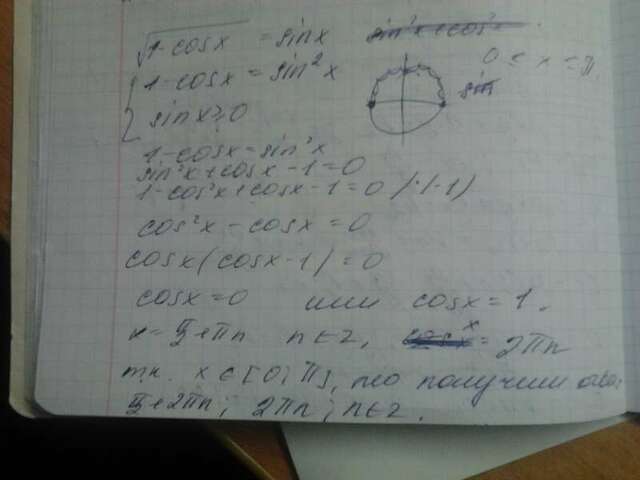 √1-cosx = sinx
0 ≤ x ≤ π
{ 1-cosx = sin²x
sinx ≥ 0
1-cosx = sin²x
sin²x + cosx - 1 = 0
1-cos²x + cosx - 1 = 0 /·(-1)
cos²x - cosx = 0
cosx(cosx-1) = 0
cosx = 0 или cosx = 1.
x = π/2 + πn n∈Z, x = 2πn
т.к. x∈[0; π], то получим
π/2 + 2πn; 2πn; n∈Z.